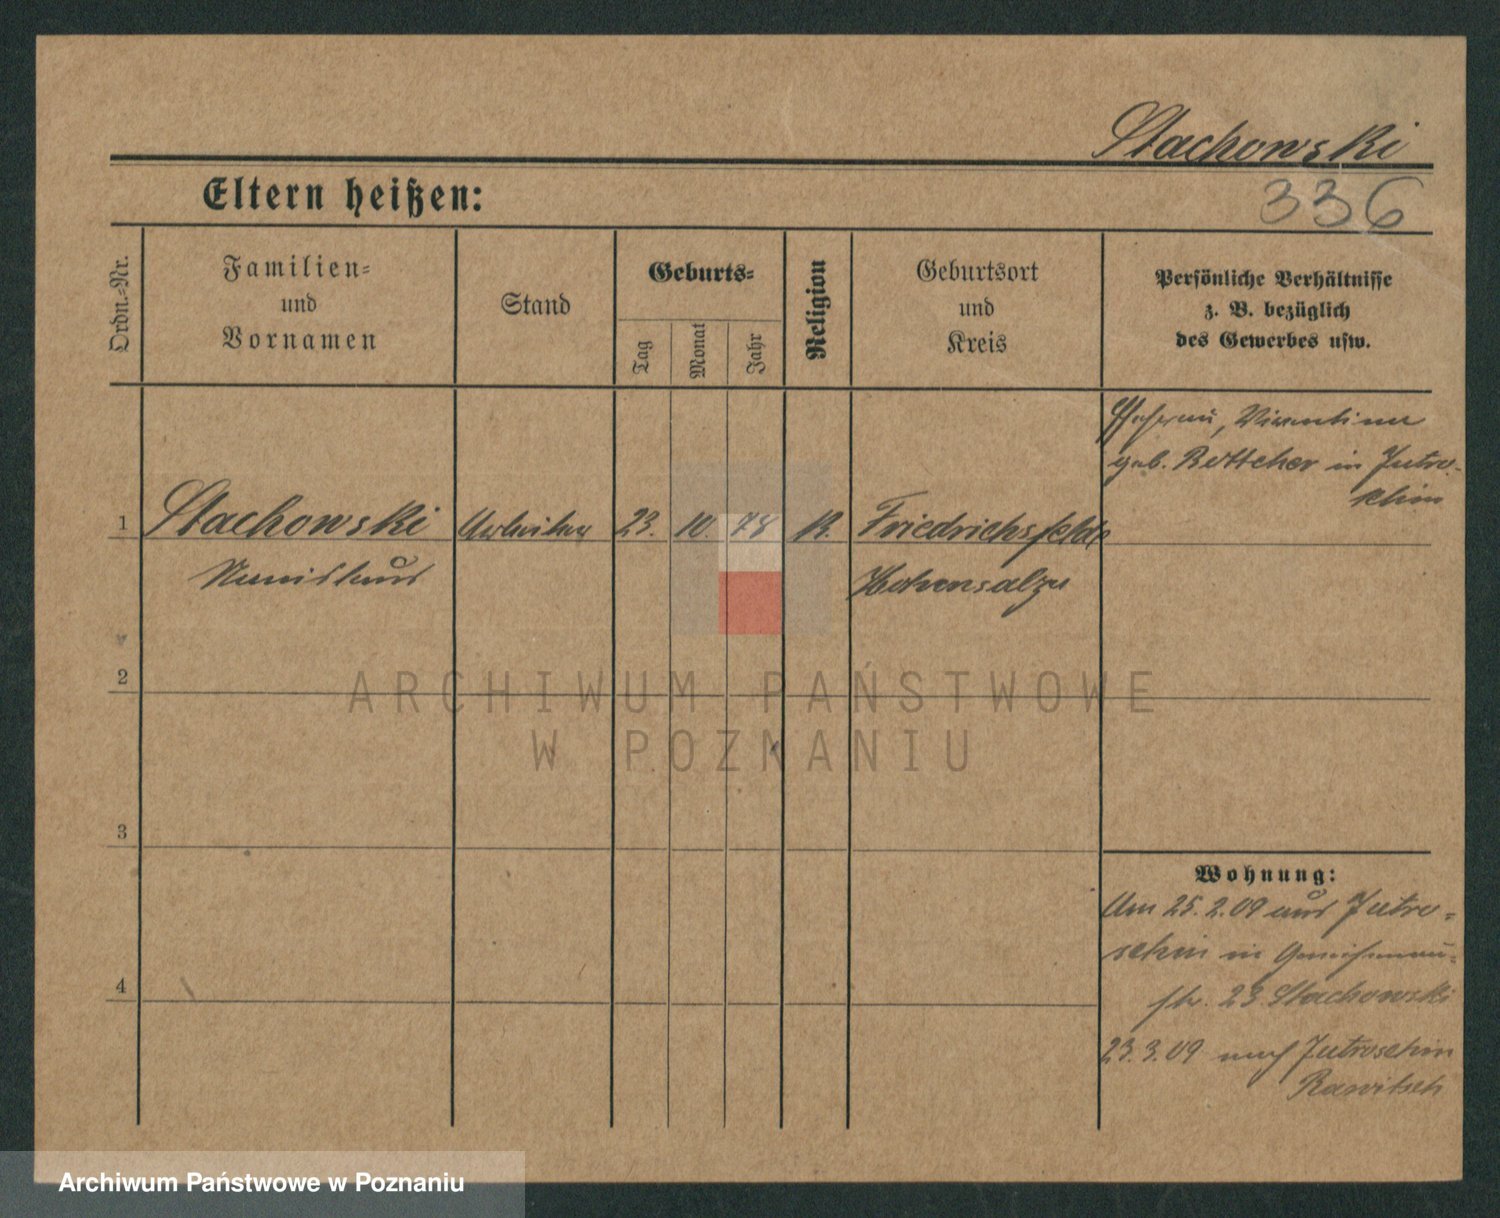 Stachowski
Eltern heißen:
336
Ordn.-Nr.
Familien-
und
Vornamen
Stand
Geburts-
Tag
Monat
Jahr
Religion
Geburtsort
und
Kreis
Persönliche Verhältnisse
z. B. bezüglich
des Gewerbes usw.
geb. Bettcher in Jutro-
schin
1
Stachowski
Arbeiter
23.
10.
78
K.
Friedrichsfelde
Stanislaus
Hohensalza
2
3
4
Wohnung:
Am 25.2.09 aus Jutro-
schin in Gneisenau-
str. 23 Stachowski
23.3.09 nach Jutroschin
Rawitsch
ARCHIWUM PAŃSTWOWE
W POZNANIU
Archiwum Państwowe w Poznaniu